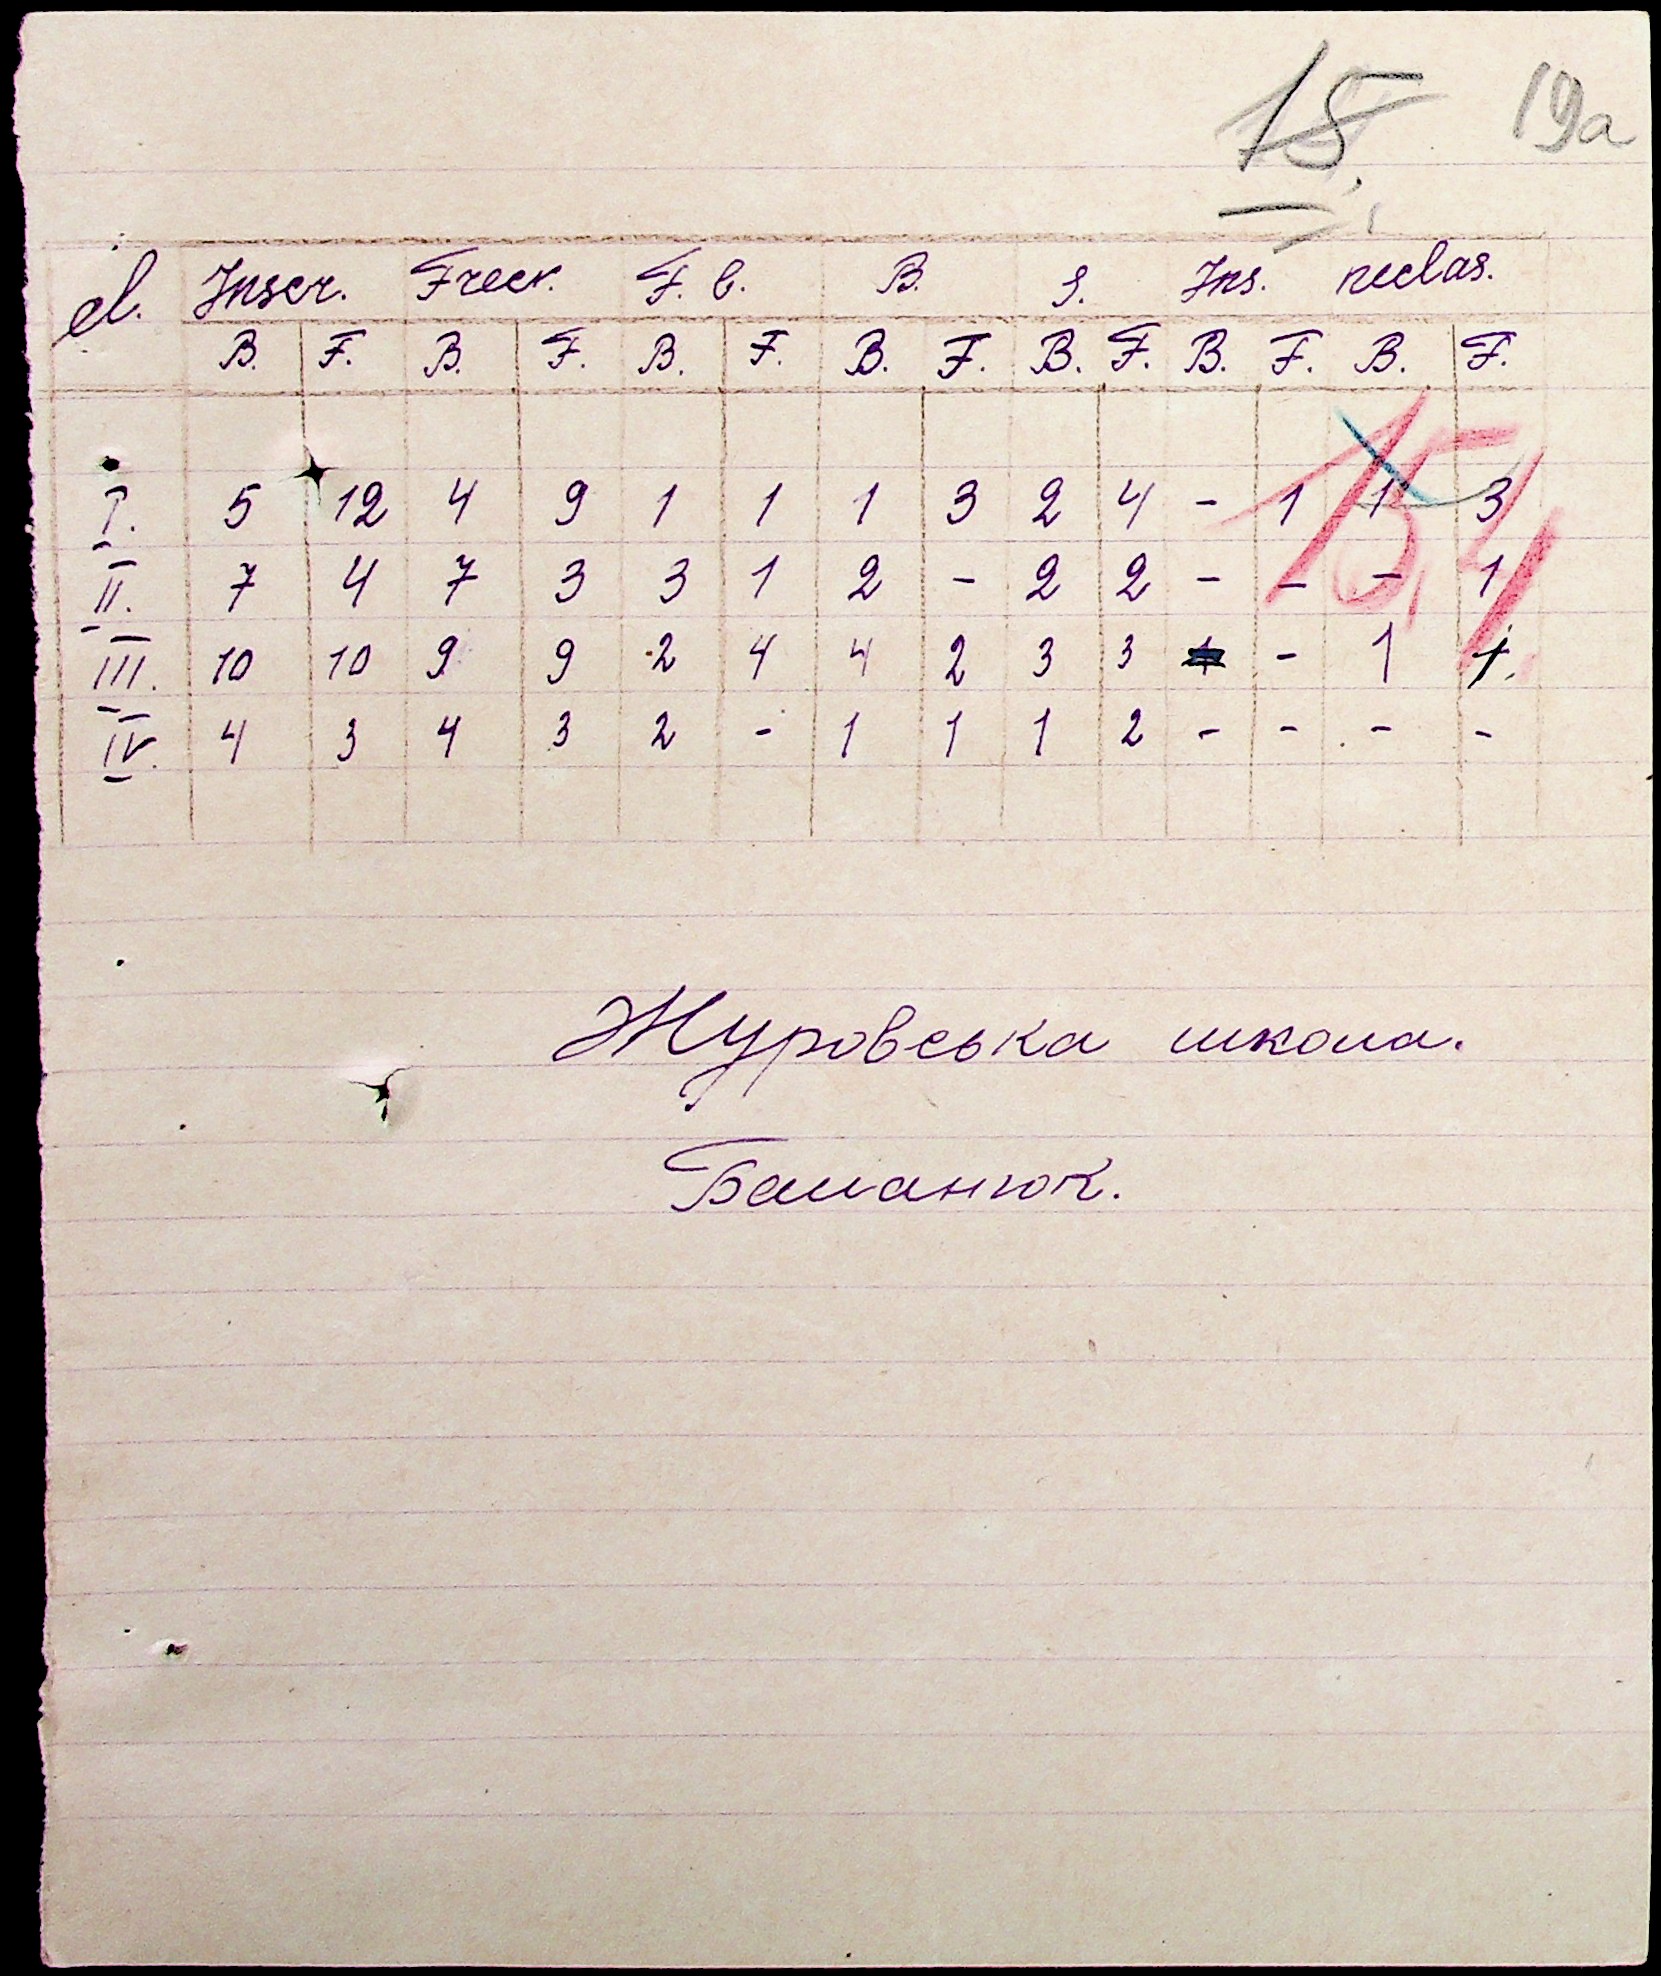 15. 19a
cl. Inscr. Frecv. F. b. B. S. Ins. neclas.
B. F. B. F. B. F. B. F. B. F. B. F. B. F.
I. 5 12 4 9 1 1 1 3 2 4 - 1 1 3
II. 7 4 7 3 3 1 2 - 2 2 - - - 1
III. 10 10 9 9 2 4 4 2 3 3 - 1 1.
IV. 4 3 4 3 2 - 1 1 1 2 - - - -
Журовська школа.